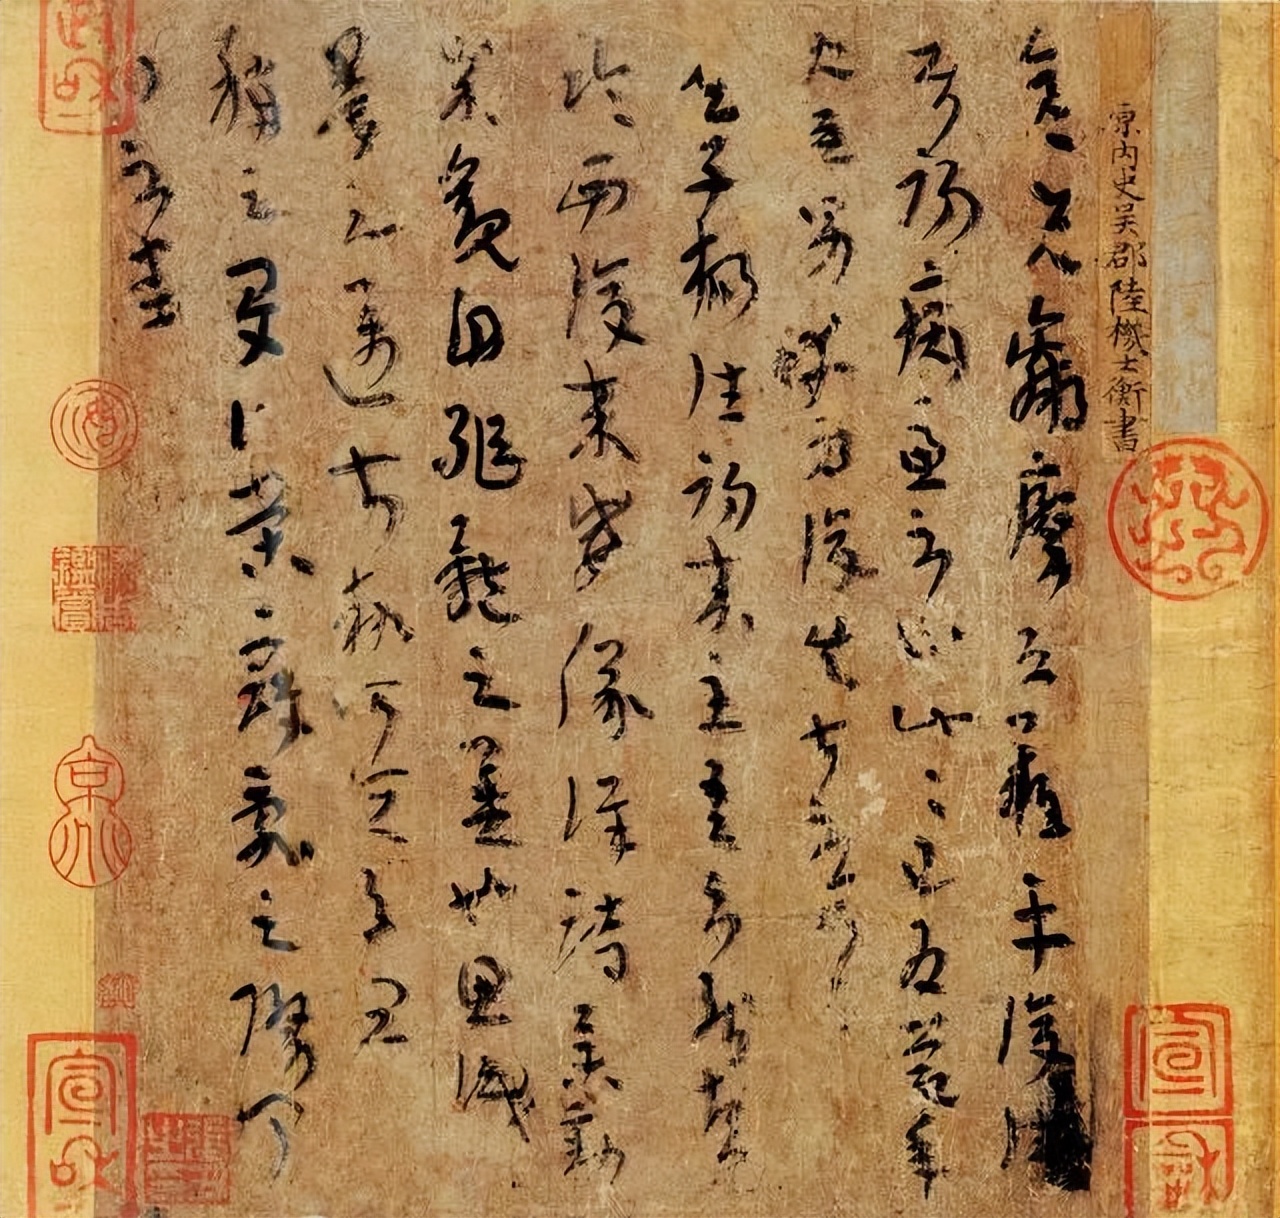 晉內史吳郡陸機士衡書
彥先羸瘵恐難平復往屬
初病慮不止此此已為慶承
使唯男幸為復失前憂耳
吳子楊往初來主吾不能盡
臨西復來威儀詳跱舉動
成觀自軀體之美也思識
量之邁前勢所恒有宜
稱之夏伯榮寇亂之際聞
問不悉
宣和
政和
宣和